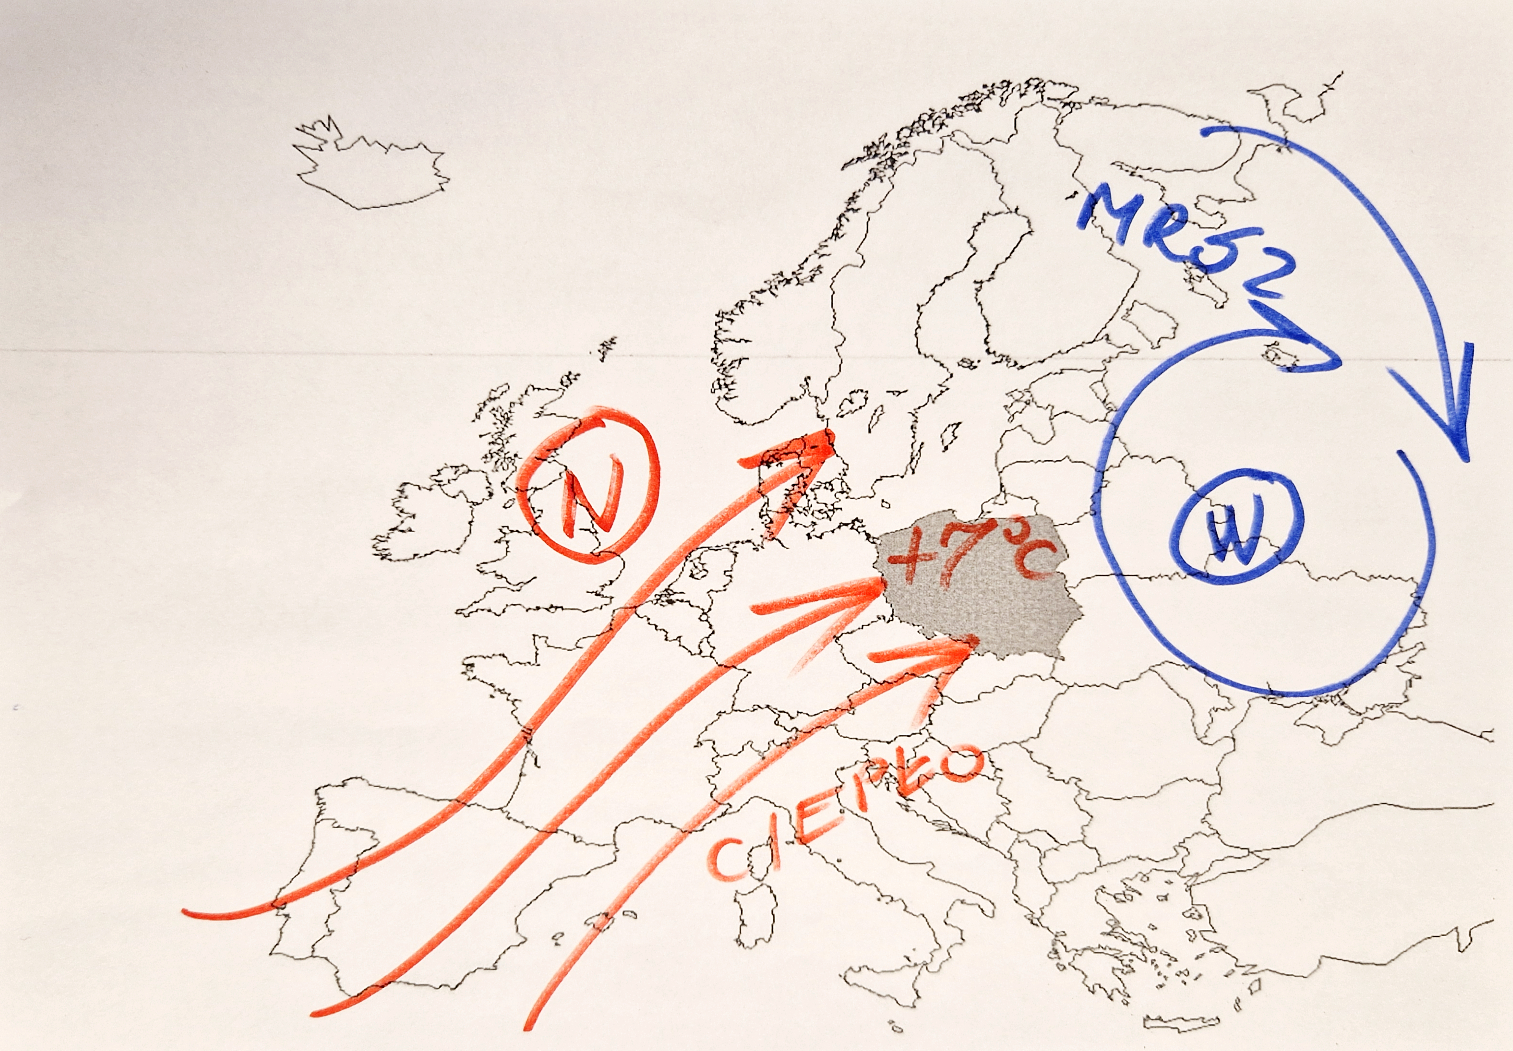 MRÓZ
N
W
+7°C
CIEPŁO